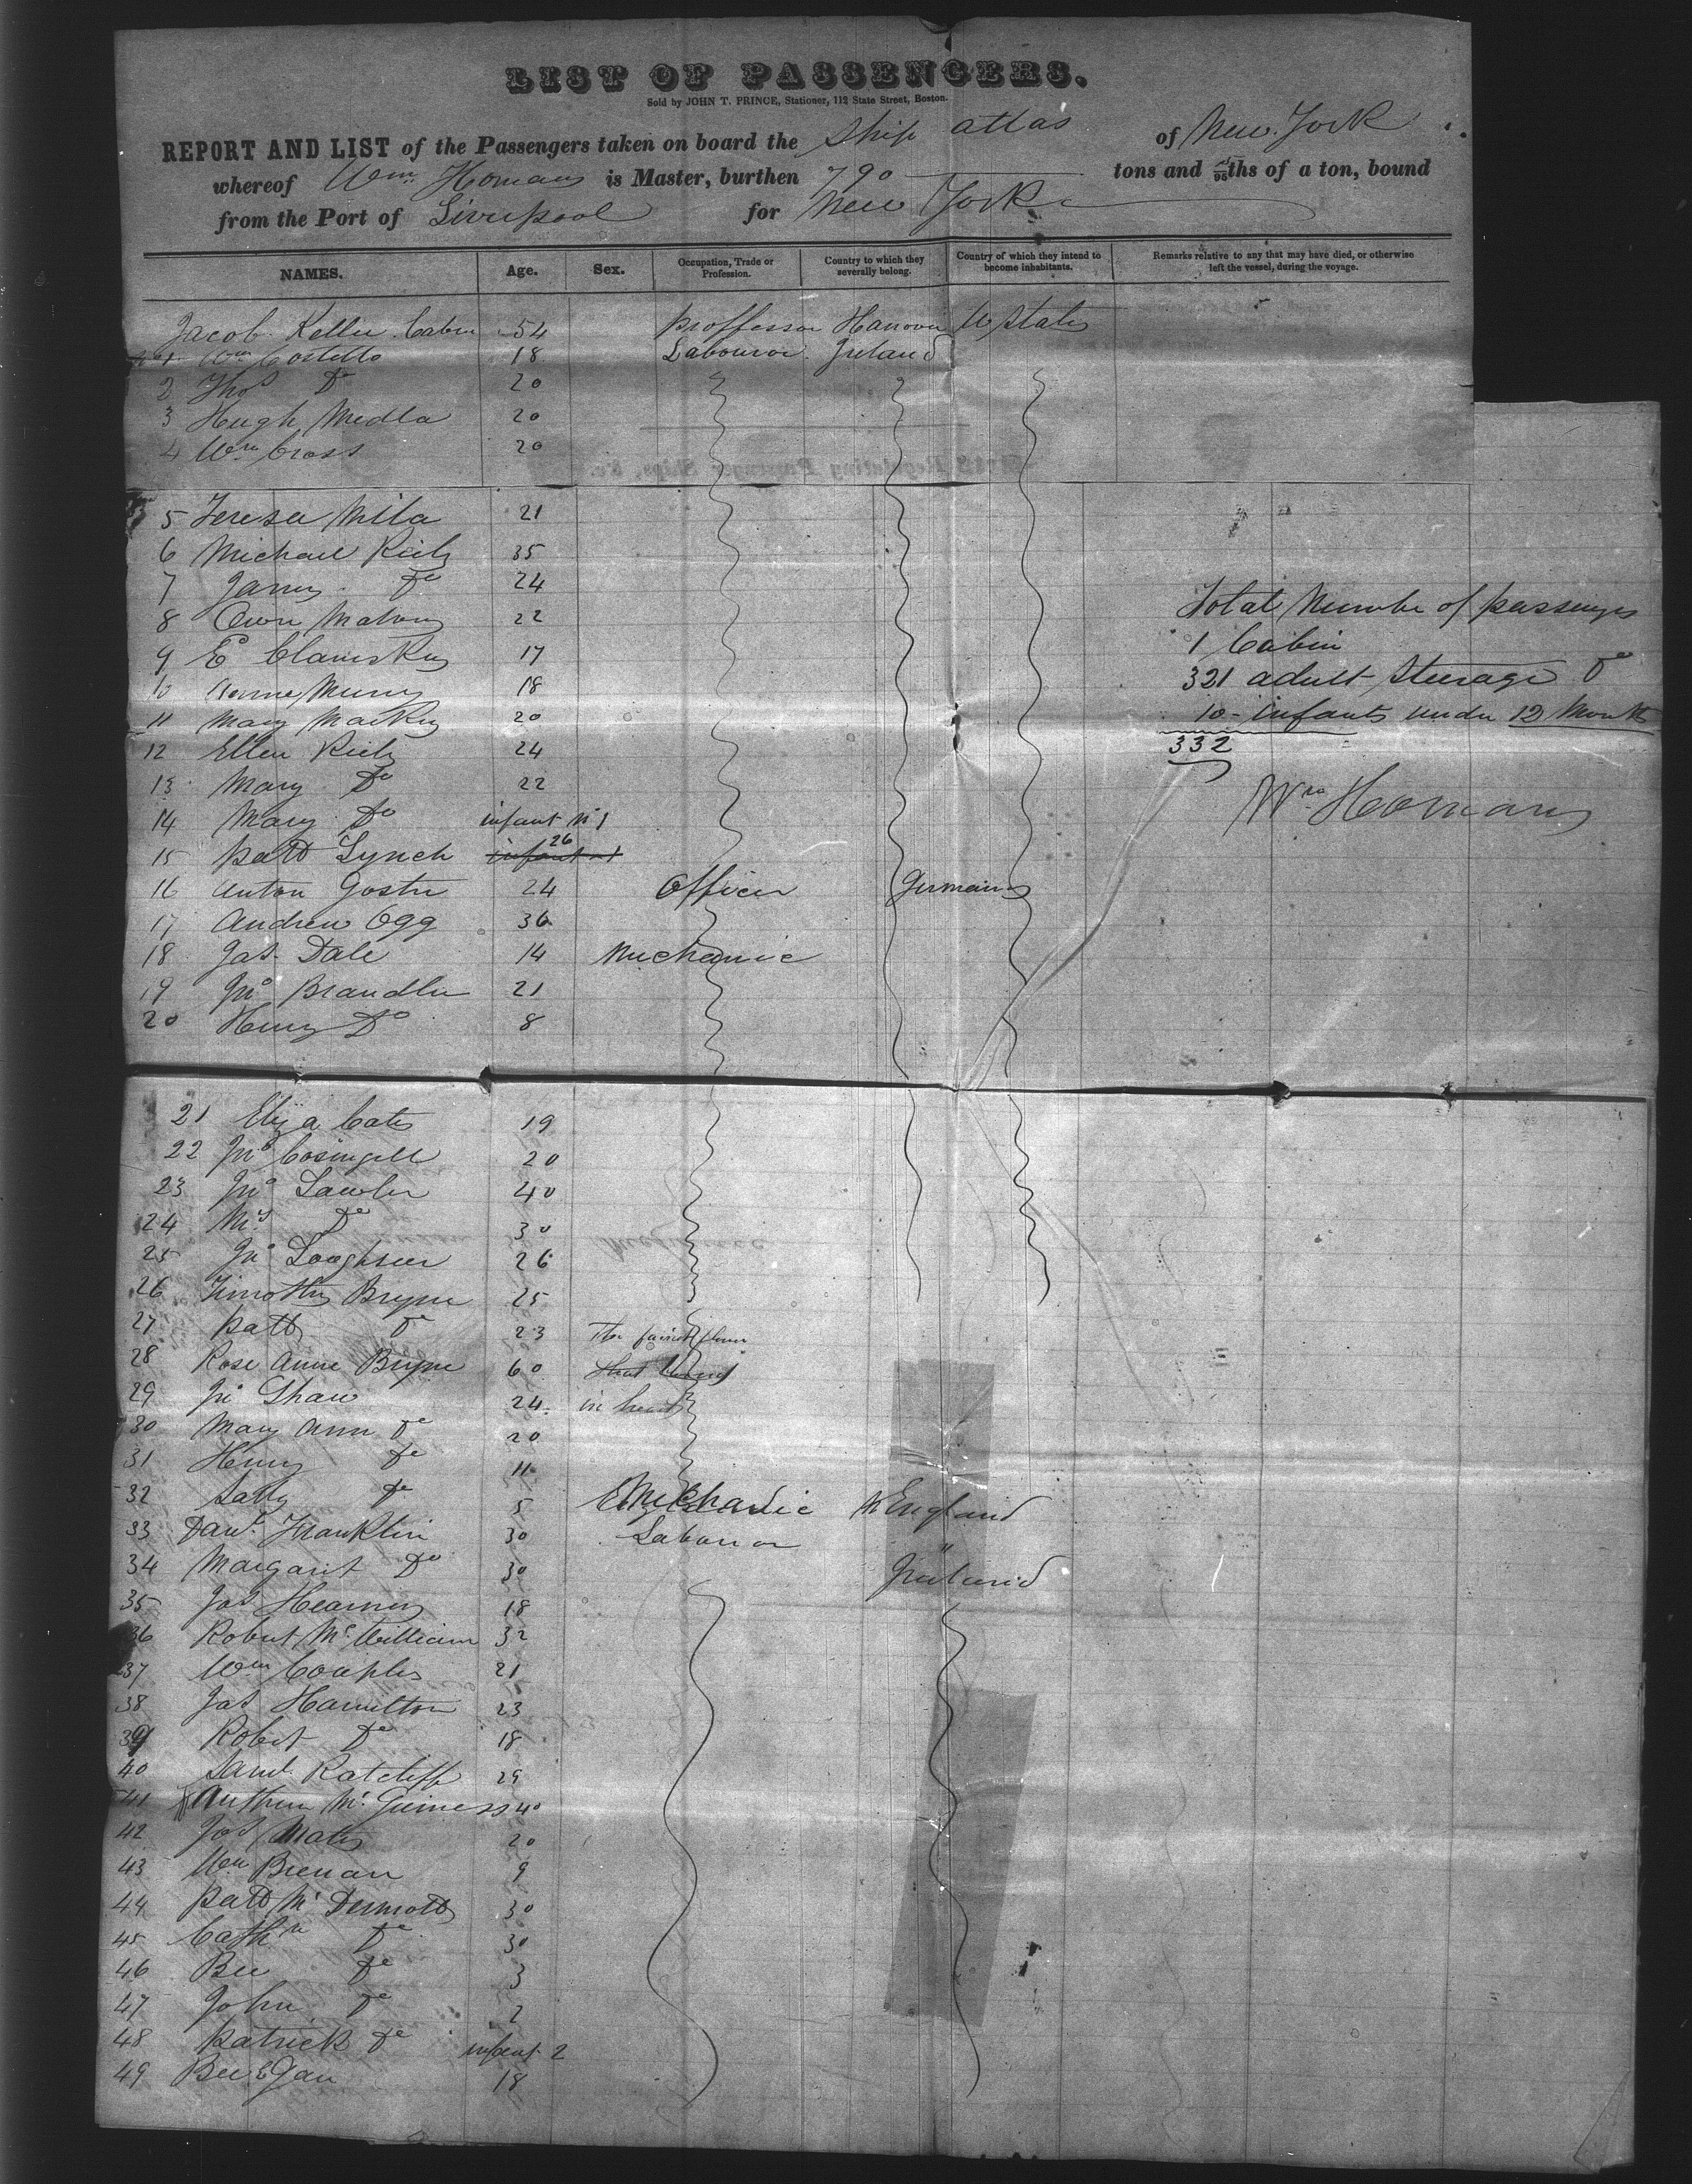 LIST OF PASSENGERS.
Sold by JOHN T. PRINCE, Stationer, 112 State Street, Boston.
REPORT AND LIST of the Passengers taken on board the Ship atlas of New York
whereof Wm Homans is Master, burthen 790 tons and 95ths of a ton, bound
from the Port of Liverpool for New York
NAMES. Age. Sex. Occupation, Trade or Profession. Country to which they severally belong. Country of which they intend to become inhabitants. Remarks relative to any that may have died, or otherwise left the vessel, during the voyage.
Jacob Keller Cabin 54 Proffessor Hanover U States
1 Wm Costello 18 Labourer Ireland
2 Thos Do 20
3 Hugh Medla 20
4 Wm Cross 20
5 Teresa Mila 21
6 Michael Riely 35
7 James Do 24
8 Owen Malony 22
9 Ed 17
10 Anne Murry 18
11 Mary Markey 20
12 Ellen Riely 24
13 Mary Do 22
14 Mary Do infant No 1
15 Patt Lynch infant 26
16 Anton 24 Officer Germany
17 Andrew Ogg 36
18 Jas Dale 14 Mechanic
19 Jno Brandler 21
20 Henry Do 8
Total Number of passengers
1 Cabin
321 adult Steerage Do
10 - infants under 12 Months
332
Wm Homans
21 Eliza Cates 19
22 Jno 20
23 Jno Lawler 40
24 Mrs Do 30
25 Jno 26
26 Timothy Bryne 25
27 Patt Do 23 The fairest flower
28 Rose Anne Bryne 60 that
29 Jno Shaw 24 in
30 Mary Ann Do 20
31 Henry Do 11
32 Sally Do 5 Mechanic England
33 Danl Franklin 30 Labourer "
34 Margaret Do 30 Ireland
35 Jas Hearney 18
36 Robert McWilliam 32
37 Wm Couples 21
38 Jas Hamilton 23
39 Robert Do 18
40 Saml Ratcliffe 29
41 Arthur McGuiness 40
42 Jos 20
43 Wm Brenan 9
44 Patt McDermott 30
45 Cathn Do 30
46 Bee Do 3
47 John Do 2
48 Patrick Do infant 2
49 Bee Egan 18